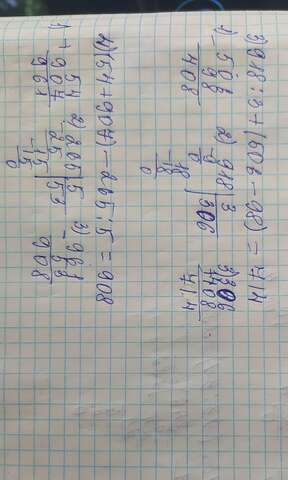 3) 918 : 3 + (506 - 98) = 714
1) 506 2) 918 | 3 3) 306
98 9 306 + 408
408 18 714
18
0
4) (54 + 907) - 265 : 5 = 908
1) + 54 2) 265 | 5 3) - 961
907 25 53 53
961 - 15 908
15
0